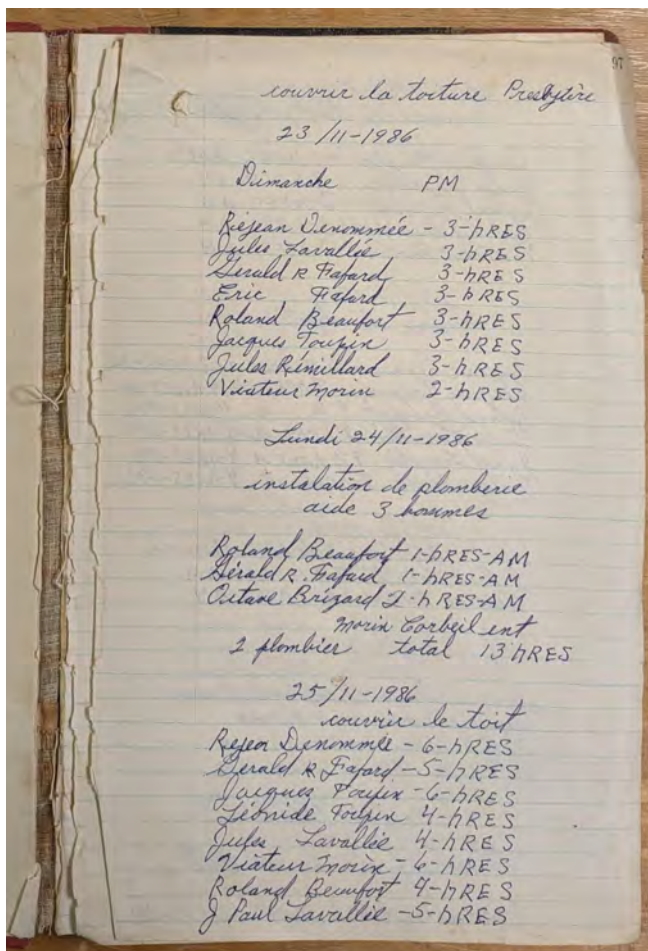 97
couvrir la toiture Presbytère
23/11-1986
Dimanche PM
Réjean Denommée - 3-hRES
Jules Lavallée 3-hRES
Gérald R Fafard 3-hRES
Eric Fafard 3-hRES
Roland Beaufort 3-hRES
Jacques Toupin 3-hRES
Jules Rémillard 3-hRES
Viateur Morin 2-hRES
Lundi 24/11-1986
instalation de plomberie
aide 3 hommes
Roland Beaufort 1-hRES-AM
Gérald R. Fafard 1-hRES-AM
Octave Brizard 2-hRES-AM
Morin Corbeil ent
2 plombier total 13 hRES
25/11-1986
couvrir le toit
Rejean Denommée - 6-hRES
Gerald R Fafard - 5-hRES
Jacques Toupin - 6-hRES
Léonide Toupin 4-hRES
Jules Lavallée 4-hRES
Viateur Morin - 6-hRES
Roland Beaufort 4-hRES
J Paul Lavallée - 5-hRES